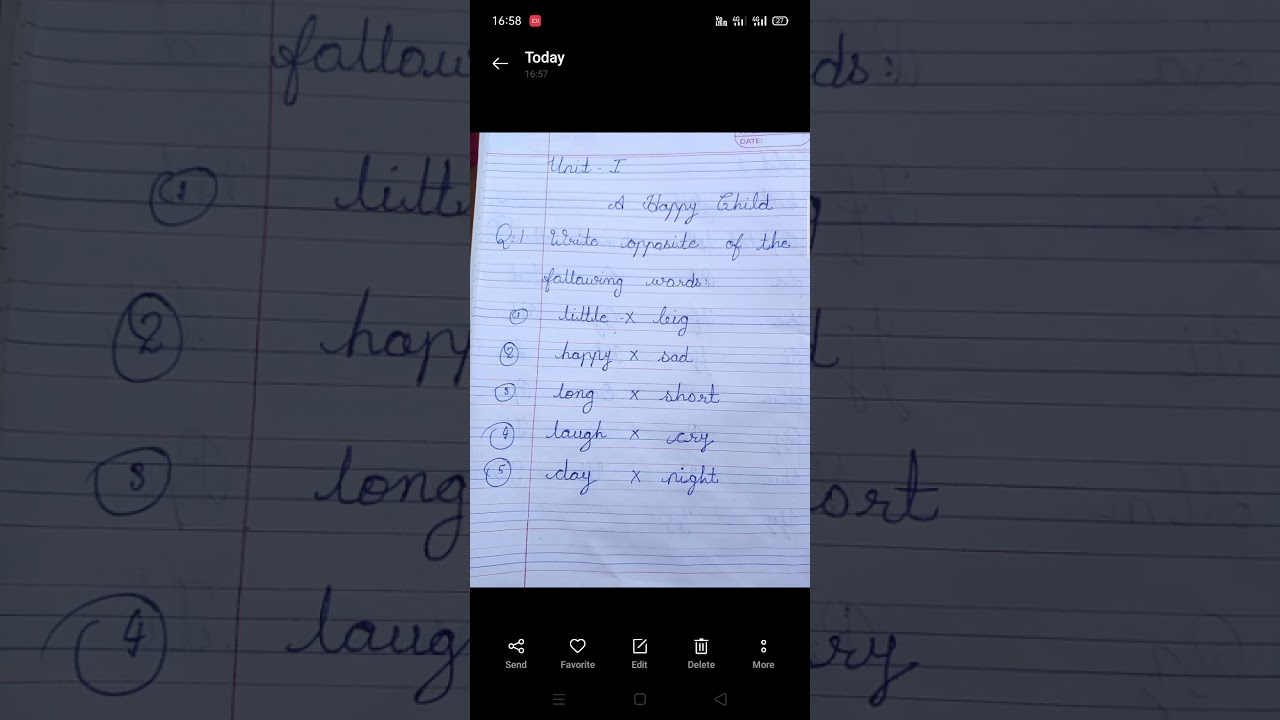 16:58
27
Today
16:57
DATE:
Unit - I
A Happy Child
Q.1 Write opposite of the
following words:
1 little x big
2 happy x sad
3 long x short
4 laugh x cry
5 day x night
Send Favorite Edit Delete More